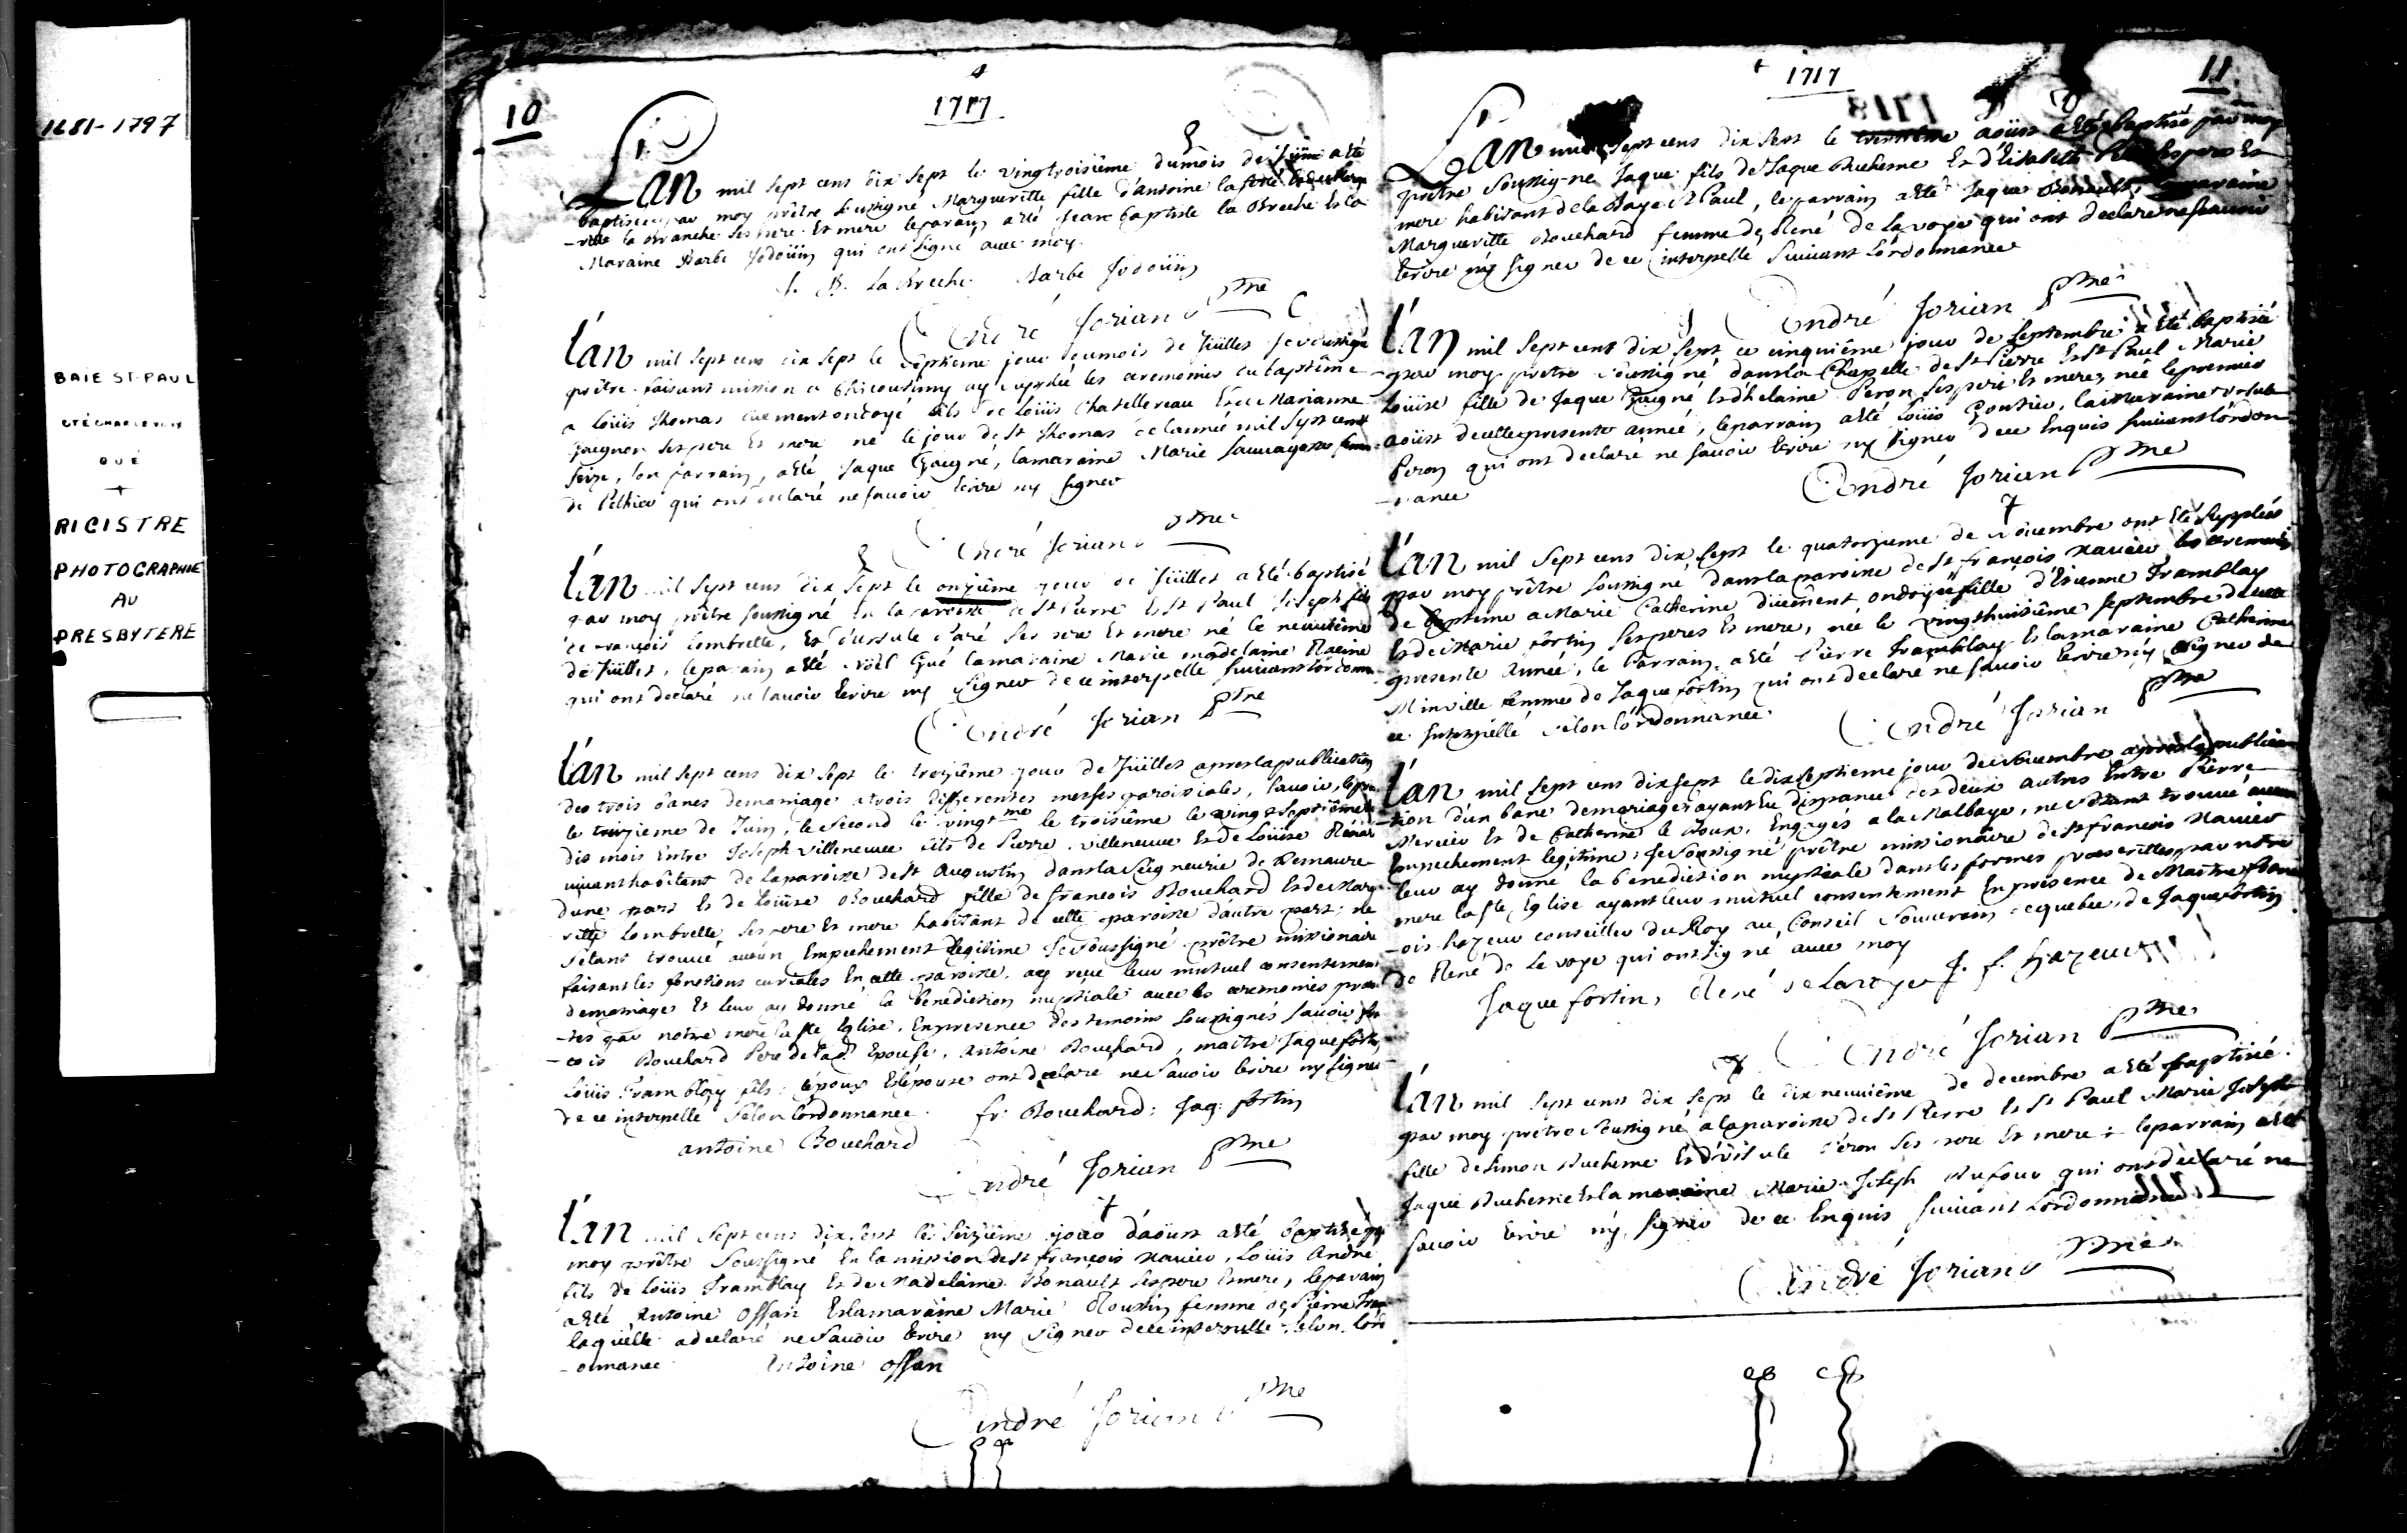 1681-1797
BAIE ST-PAUL
CTÉ CHARLEVOIX
QUÉ
RIGISTRE
PHOTOGRAPHIÉ
AU
PRESBYTERE
10
1717
L'an mil sept cens dix sept le vingtroisième du mois de Juin a été
baptisée par moy prêtre soussigné Margueritte fille d'antoine
la Branche ses pere et mere le parain a été Jean baptiste la Breche et la
Maraine Barbe Jodoüin qui ont signé avec moy.
J. B. La Breche Barbe Jodoüin
André Jorian ptre
L'an mil sept cens dix sept le septieme jour du mois de Juillet Je soussigné
prêtre faisant mission a Chicoutimy ay supplié les ceremonies du baptême
a Loüis Thomas duement ondoyé fils de Loüis Chatellereau et de Marianne
Gaignon ses pere et mere né le jour de St Thomas de l'année mil sept cent
seize, son parrain, a été Jaque Gaigné, la maraine Marie Sauvagesse femme
de Peltier qui ont declaré ne savoir ecrire ny signer
André Jorian ptre
L'an mil sept cens dix sept le onzième jour de Juillet a été baptisé
par moy prêtre soussigné en la paroisse de St Pierre et St Paul Joseph fils
de françois Lombrette, et d'ursule Paré ses pere et mere né le neuvième
de Juillet, le parain a été Noël Gué la maraine Marie madelaine Racine
qui ont declaré ne savoir ecrire ny signer de ce interpellé suivant l'ordonn
André Jorian ptre
L'an mil sept cens dix sept le treizième jour de Juillet apres la publication
des trois banes de mariage a trois differentes messes paroissiales, savoir, le pre
le treizieme de Juin, le second le vingtme le troisième le vingt septième du
dis mois entre Joseph villeneuve fils de Pierre villeneuve et de Loüise
vivant habitant de la paroisse de St Augustin dans la seigneurie de Demaure
d'une part et de Loüise Bouchard fille de francois Bouchard et de Marg
ritte Lombrette ses pere et mere habitant de cette paroisse d'autre part; ne
s'etant trouvé aucun Empechement legitime Je soussigné prêtre missionaire
faisant les fonctions curiales En cette paroisse, ay reçu leur mutuel consentement
de mariage et leur ay donné la benediction nuptiale avec les ceremonies prescri
-tes par notre mere la Ste Eglise, En presence des temoins soussignés savoir fr
-cois Bouchard Pere de lad. Epouse, antoine Bouchard, maitre Jaque fortin,
Loüis Tramblay fils: l'époux et l'épouse ont declaré ne savoir ecrire ny signer
de ce interpellé selon l'ordonnance. fr: Bouchard: Jaq: fortin
antoine Bouchard
André Jorian ptre
L'an mil sept cens dix sept le seizième jour d'aoust a été baptisé par
moy prêtre soussigné En la mission de St françois xavier, Loüis André
fils de Loüis Tramblay et de Madelaine Bonault ses pere et mere, le parain
a été Antoine Offan et la maraine Marie Roussin femme de Pierre Tram
laquelle a declaré ne savoir ecrire ny signer de ce interpellé selon l'ord
-onnance Antoine offan
André Jorian ptre
1717
11
L'an mil sept cens dix sept le aoust a été baptisé par moy
prêtre soussigné Jaque fils de Jaque Duchesne et d'Elisabeth ses pere et
mere habitant de la Baye St Paul, le parrain a été Jaque Bonault, la maraine
Margueritte Bouchard femme de René de la voye qui ont declaré ne savoir
Ecrire ny signer de ce interpellé suivant l'ordonnance
André Jorian ptre
L'an mil sept cent dix sept ce cinquième jour de septembre a été baptisée
par moy prêtre soussigné dans la Chapelle de St Pierre et St Paul Marie
Loüise fille de Jaque Gaigné et d'helaine Peron ses pere et mere, née le premier
aoust de cette presente année, le parrain a été Loüis Gontier, la maraine ursule
Peron qui ont declaré ne savoir ecrire ny signer de ce Enquis suivant l'ordon
-nance
André Jorian ptre
L'an mil sept cens dix sept le quatorzieme de novembre ont été suppliés
par moy prêtre soussigné dans la paroisse de St françois xavier les ceremonies
de baptême a Marie Catherine düement ondoyée fille d'Etienne Tramblay
et de Marie fortin ses peres et mere, née le vingthuitième septembre de cette
presente année, le Parrain a été Pierre Tramblay et la maraine Catherine
Minville femme de Jaque fortin qui ont declaré ne savoir ecrire ny signer de
ce interpellé selon l'ordonnance
André Jorian ptre
L'an mil sept cens dix sept le dix septieme jour de novembre apres la publica
-tion d'un bane de mariage ayant Eu dispance des deux autres Entre Pierre
Mercier et de Catherine le Roux, Engagés a la Malbaye, ne s'étant trouvé aucun
Empechement legitime, Je soussigné prêtre missionaire de St francois xavier
leur ay donné la benediction nuptiale dans les formes prescrittes par notre
mere la Ste Eglise ayant leur mutuel consentement En presence de Maitre fran
-ois hazeur conseiller du Roy au Conseil souverain de quebec, de Jaque fortin
de René de la voye qui ont signé avec moy
Jaque fortin, René de lavoye J. f. hazeur
André Jorian ptre
L'an mil sept cens dix sept le dix neuvième de decembre a été baptisée
par moy prêtre soussigné a la paroisse de St Pierre et St Paul Marie Joseph
fille de Simon Duchesne et d'ursule Peron ses pere et mere; le parrain a été
Jaque Duchesne et la maraine Marie Joseph Dufour qui ont declaré ne
savoir ecrire ny signer de ce Enquis suivant l'ordonnance
André Jorian ptre